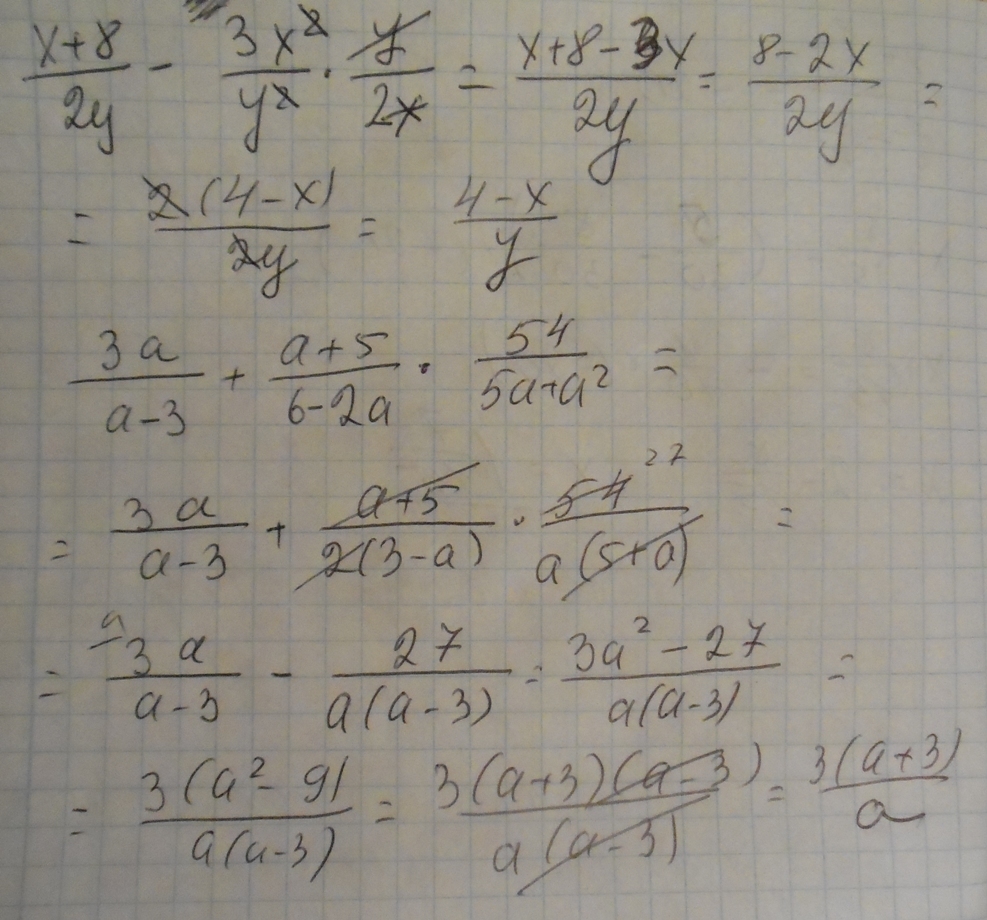 (x+8)/(2y) - (3x²)/(y²) · y/(2x) = (x+8-3x)/(2y) = (8-2x)/(2y) =
= (2(4-x))/(2y) = (4-x)/y
(3a)/(a-3) + (a+5)/(6-2a) · 54/(5a+a²) =
= (3a)/(a-3) + (a+5)/(2(3-a)) · 54 27/(a(5+a)) =
= a (3a)/(a-3) - 27/(a(a-3)) = (3a²-27)/(a(a-3)) =
= (3(a²-9))/(a(a-3)) = (3(a+3)(a-3))/(a(a-3)) = (3(a+3))/a